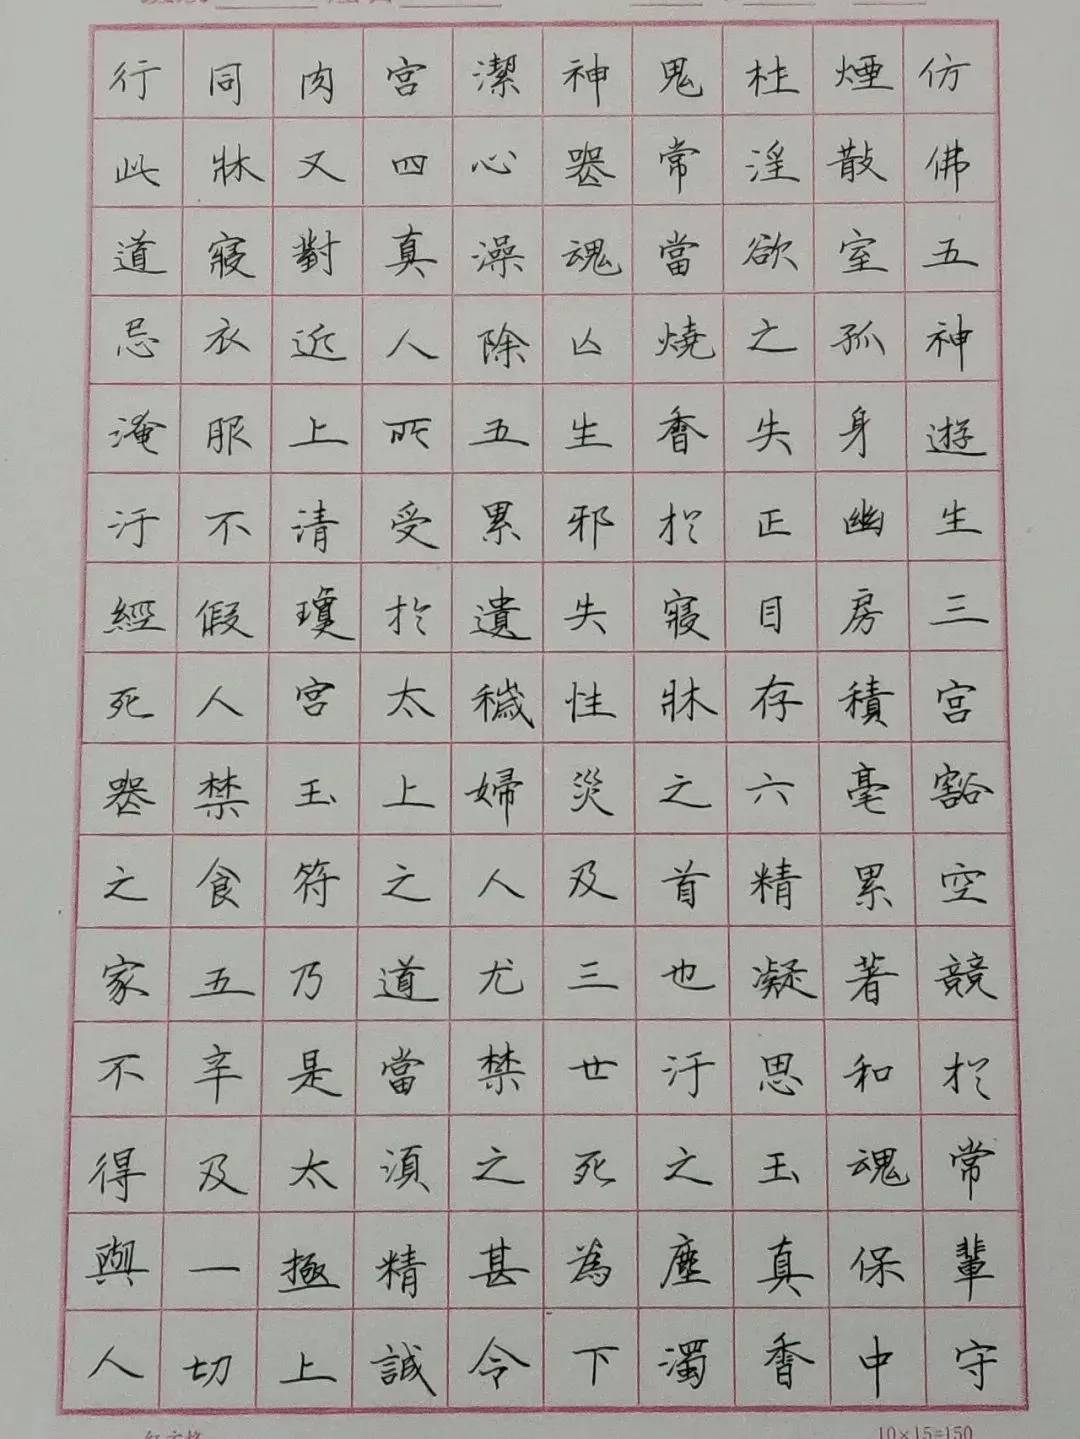 仿佛五神遊生三宮豁空競於常輩守
煙散室孤身幽房積毫累著和魂保中
杜淫欲之失正目存六精凝思玉真香
鬼常當燒香於寢牀之首也汙之塵濁
神喪魂亡生邪失性災及三世死為下
潔心澡除五累遺穢婦人尤禁之甚令
宮四真人所受於太上之道當須精誠
肉又對近上清瓊宮玉符乃是太極上
同牀寢衣服不假人禁食五辛及一切
行此道忌淹汙經死喪之家不得與人
10×15=150